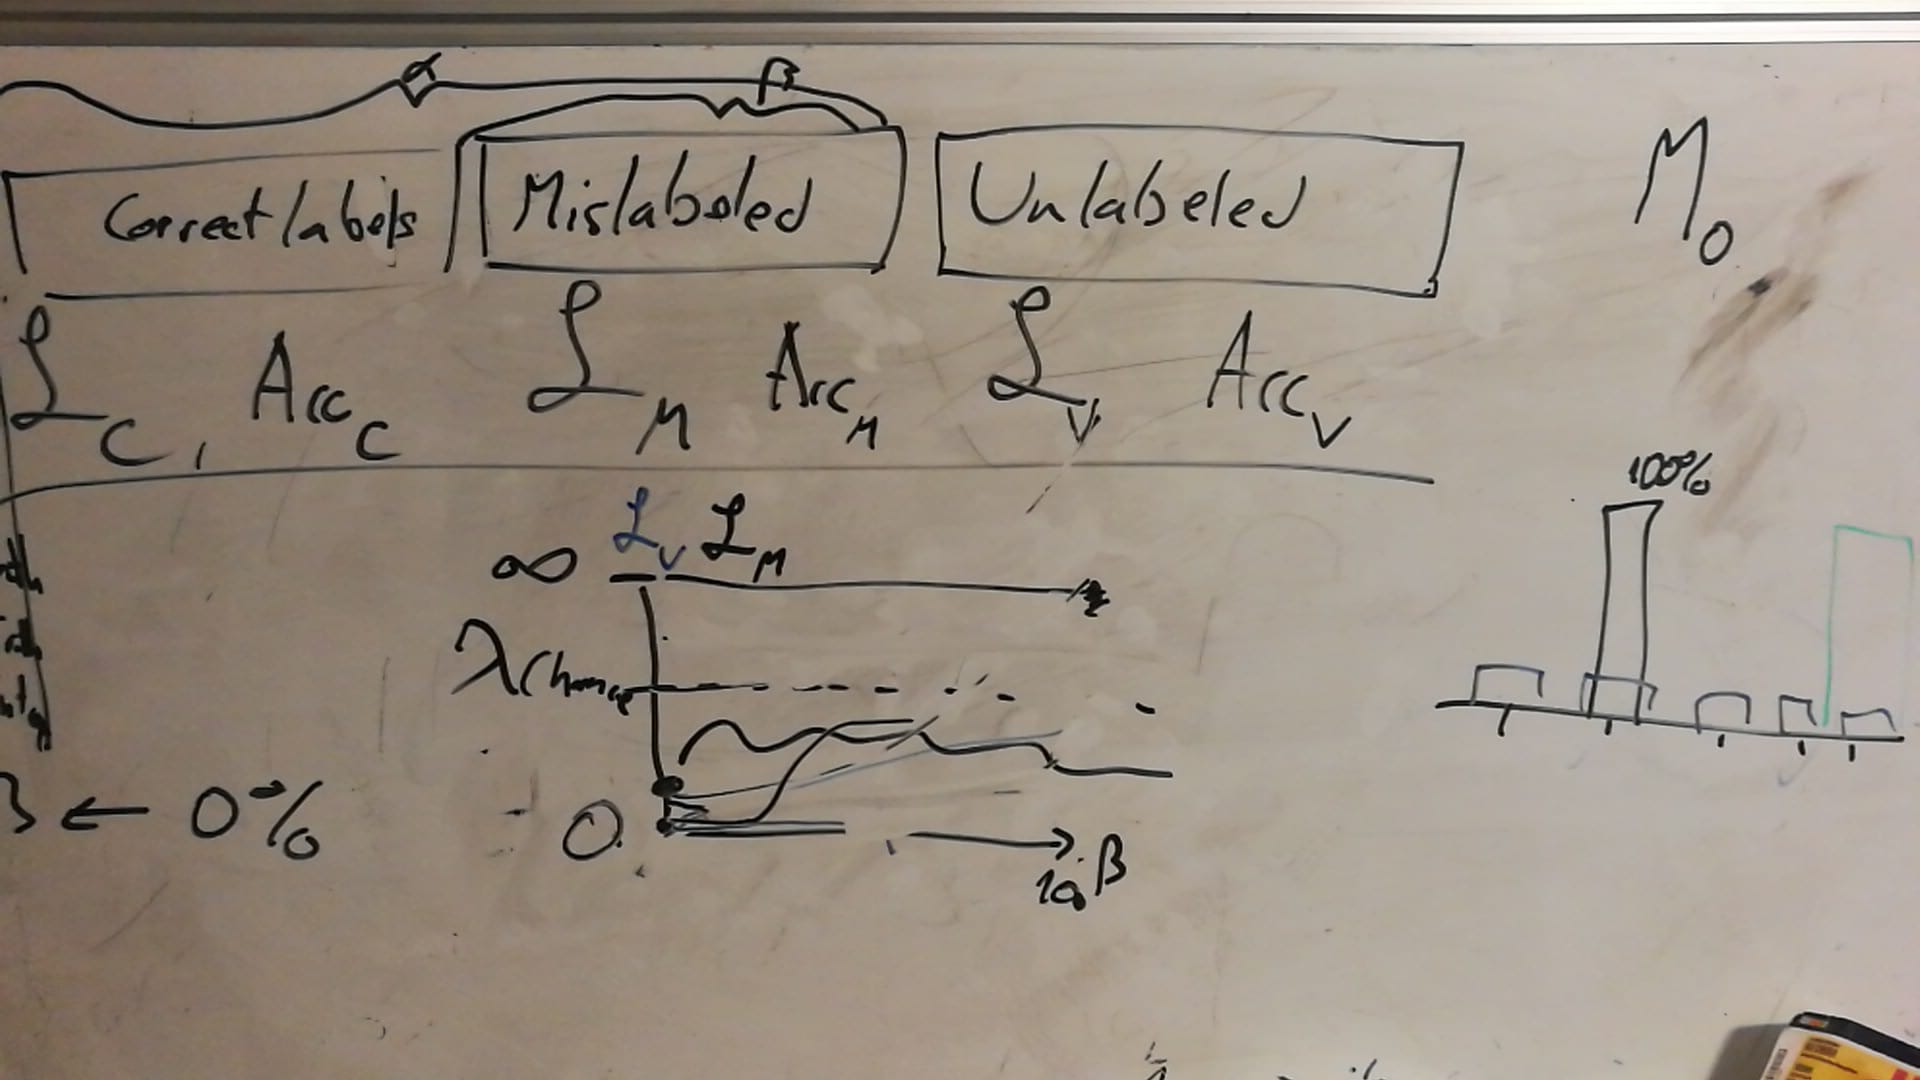 α β
Correct labels Mislabeled Unlabeled M₀
ℒ_C, Acc_C ℒ_M Acc_M ℒ_V Acc_V
100%
ℒ_V ℒ_M
∞
λchance
0
β
← 0%